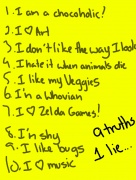 1. I am a chocoholic!
2. I ♡ Art
3. I don't like the way I look
4. I hate it when animals die
5. I like my Veggies
6. I'm a Whovian
7. I ♡ Zelda Games!
8. I'm shy
9. I like bugs
10. I ♡ music
9 truths
1 lie...